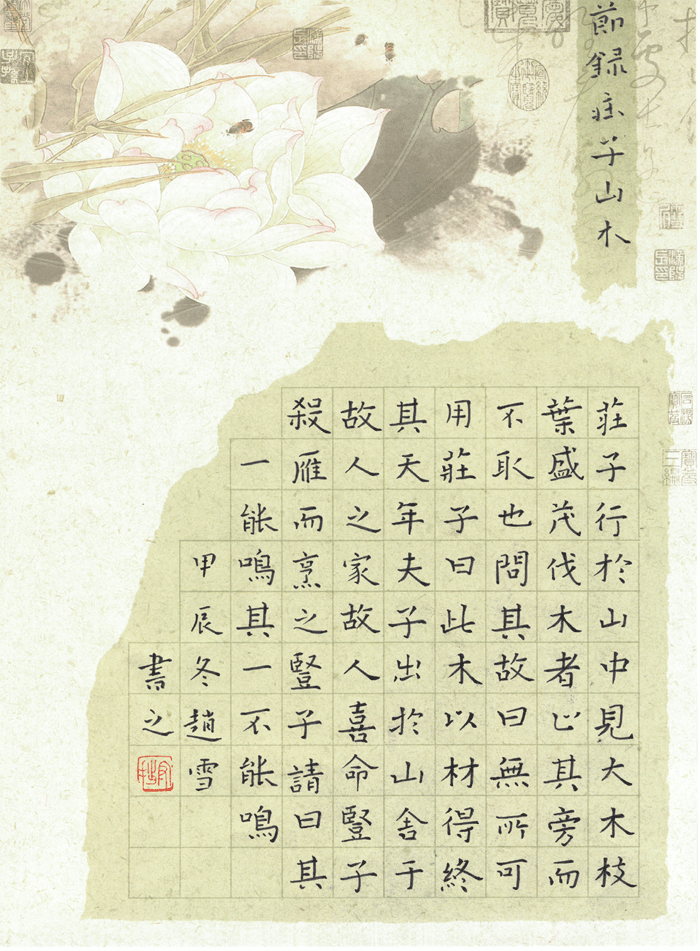 節録莊子山木
莊子行於山中見大木枝
葉盛茂伐木者止其旁而
不取也問其故曰無所可
用莊子曰此木以材得終
其天年夫子出於山舍于
故人之家故人喜命豎子
殺雁而烹之豎子請曰其
一能鳴其一不能鳴
甲辰冬趙雪
書之